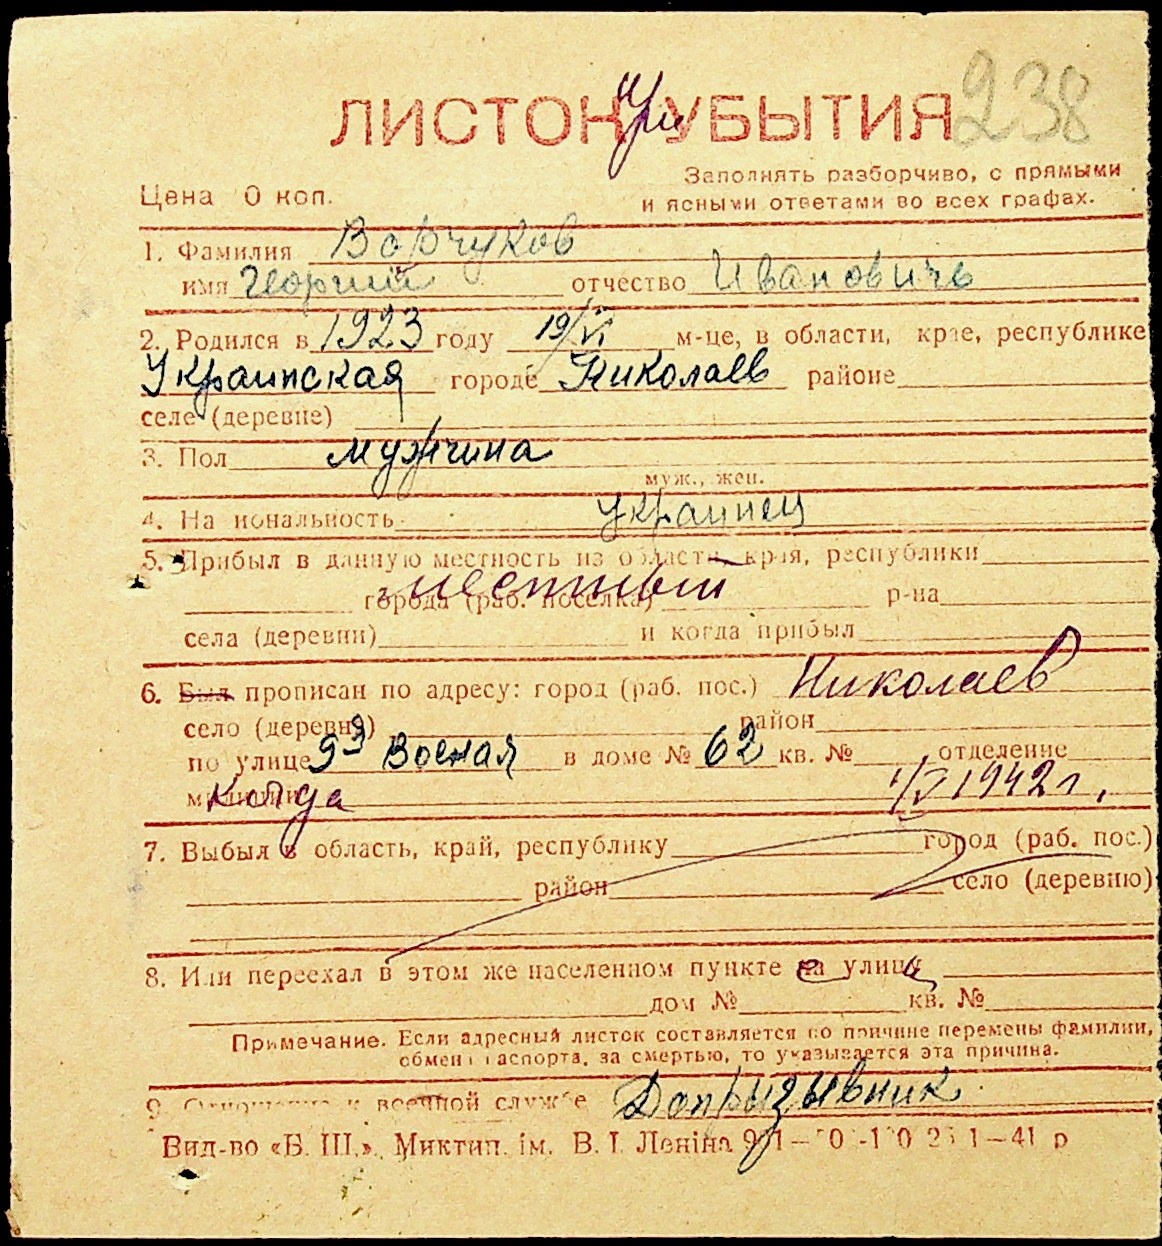 238
при
ЛИСТОК УБЫТИЯ
Заполнять разборчиво, с прямыми
Цена 0 коп.
и ясными ответами во всех графах.
1. Фамилия Ворчуков
имя Георгий отчество Ивановичъ
2. Родился в 1923 году 19/VI м-це, в области, крае, республике
Украинская городе Николаев районе
селе (деревне)
3. Пол мужчина
муж., жен.
4. На иональность украинец
5. Прибыл в данную местность из области, края, республики
местный
города (раб. поселка) р-на
села (деревни) и когда прибыл
6. Был прописан по адресу: город (раб. пос.) Николаев
село (деревня) район
по улице 9я Военая в доме № 62 кв. № отделение
Когда 1/V 1942 г.
7. Выбыл в область, край, республику город (раб. пос.)
район село (деревню)
8. Или переехал в этом же населенном пункте на улицу
дом № кв. №
Примечание. Если адресный листок составляется по причине перемены фамилии,
обмена паспорта, за смертью, то указывается эта причина.
9. Отношение к военной службе Допризывник
Вид-во «Б. Ш.». Миктип. ім. В. І. Леніна